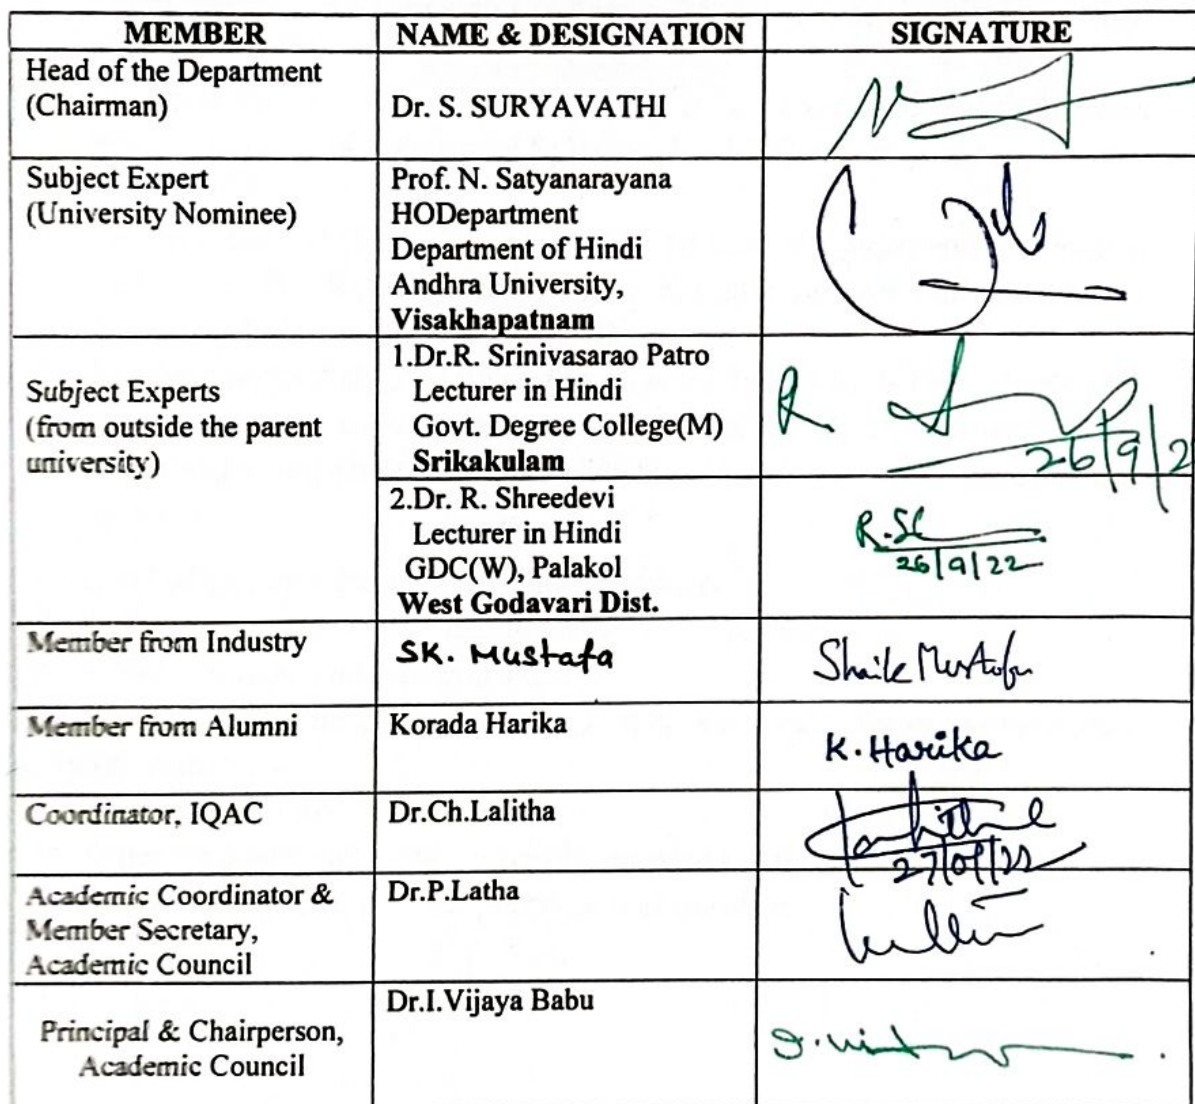 MEMBER NAME & DESIGNATION SIGNATURE
Head of the Department
(Chairman)
Dr. S. SURYAVATHI
Subject Expert
(University Nominee)
Prof. N. Satyanarayana
HODepartment
Department of Hindi
Andhra University,
Visakhapatnam
Subject Experts
(from outside the parent
university)
1.Dr.R. Srinivasarao Patro
Lecturer in Hindi
Govt. Degree College(M)
Srikakulam
R
26/9/2
2.Dr. R. Shreedevi
Lecturer in Hindi
GDC(W), Palakol
West Godavari Dist.
26/9/22
Member from Industry
SK. Mustafa
Shaik Mustafa
Member from Alumni
Korada Harika
K. Harika
Coordinator, IQAC
Dr.Ch.Lalitha
27/09/22
Academic Coordinator &
Member Secretary,
Academic Council
Dr.P.Latha
Principal & Chairperson,
Academic Council
Dr.I.Vijaya Babu